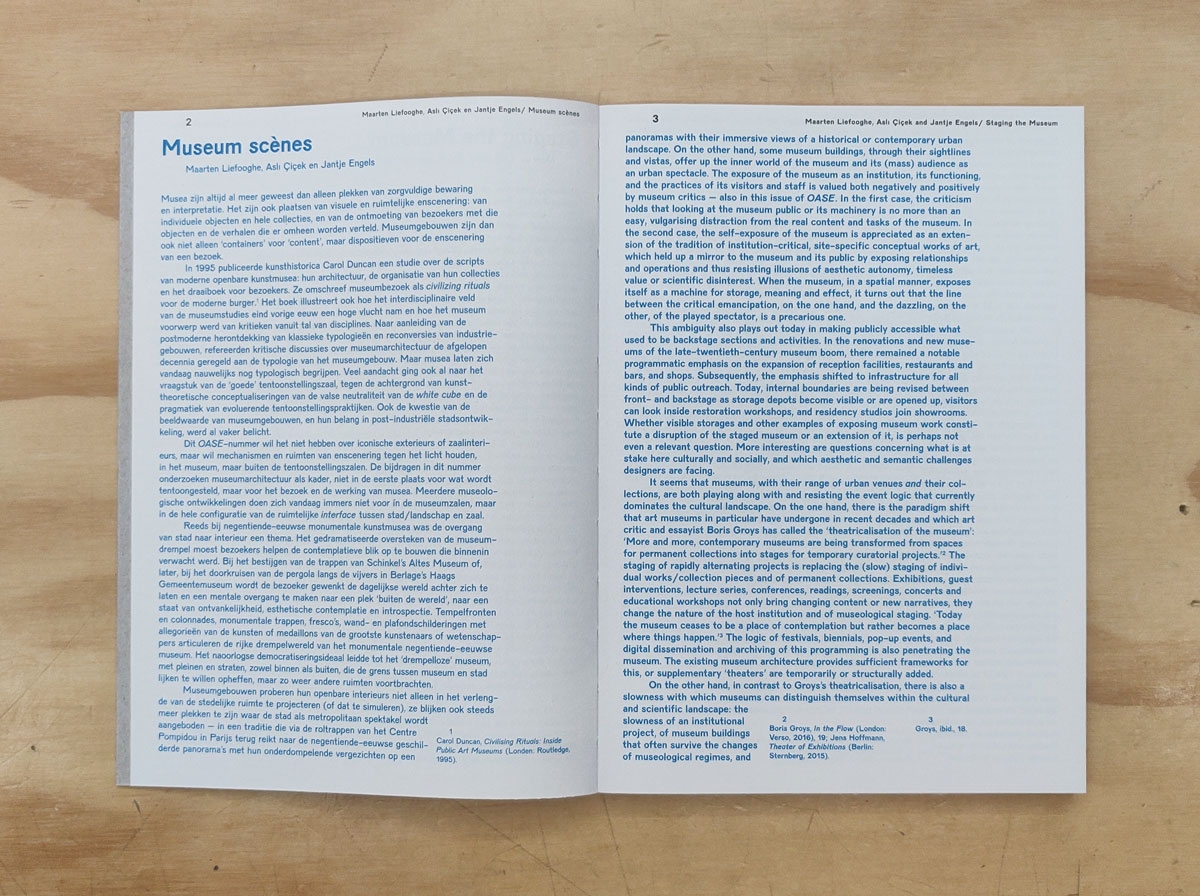 2
Maarten Liefooghe, Aslı Çiçek en Jantje Engels/ Museum scènes
Museum scènes
Maarten Liefooghe, Aslı Çiçek en Jantje Engels
Musea zijn altijd al meer geweest dan alleen plekken van zorgvuldige bewaring
en interpretatie. Het zijn ook plaatsen van visuele en ruimtelijke enscenering: van
individuele objecten en hele collecties, en van de ontmoeting van bezoekers met die
objecten en de verhalen die er omheen worden verteld. Museumgebouwen zijn dan
ook niet alleen 'containers' voor 'content', maar dispositieven voor de enscenering
van een bezoek.
In 1995 publiceerde kunsthistorica Carol Duncan een studie over de scripts
van moderne openbare kunstmusea: hun architectuur, de organisatie van hun collecties
en het draaiboek voor bezoekers. Ze omschreef museumbezoek als civilizing rituals
voor de moderne burger.¹ Het boek illustreert ook hoe het interdisciplinaire veld
van de museumstudies eind vorige eeuw een hoge vlucht nam en hoe het museum
voorwerp werd van kritieken vanuit tal van disciplines. Naar aanleiding van de
postmoderne herontdekking van klassieke typologieën en reconversies van industrie-
gebouwen, refereerden kritische discussies over museumarchitectuur de afgelopen
decennia geregeld aan de typologie van het museumgebouw. Maar musea laten zich
vandaag nauwelijks nog typologisch begrijpen. Veel aandacht ging ook al naar het
vraagstuk van de 'goede' tentoonstellingszaal, tegen de achtergrond van kunst-
theoretische conceptualiseringen van de valse neutraliteit van de white cube en de
pragmatiek van evoluerende tentoonstellingspraktijken. Ook de kwestie van de
beeldwaarde van museumgebouwen, en hun belang in post-industriële stadsontwik-
keling, werd al vaker belicht.
Dit OASE-nummer wil het niet hebben over iconische exterieurs of zaalinteri-
eurs, maar wil mechanismen en ruimten van enscenering tegen het licht houden,
in het museum, maar buiten de tentoonstellingszalen. De bijdragen in dit nummer
onderzoeken museumarchitectuur als kader, niet in de eerste plaats voor wat wordt
tentoongesteld, maar voor het bezoek en de werking van musea. Meerdere museolo-
gische ontwikkelingen doen zich vandaag immers niet voor ín de museumzalen, maar
in de hele configuratie van de ruimtelijke interface tussen stad/landschap en zaal.
Reeds bij negentiende-eeuwse monumentale kunstmusea was de overgang
van stad naar interieur een thema. Het gedramatiseerde oversteken van de museum-
drempel moest bezoekers helpen de contemplatieve blik op te bouwen die binnenin
verwacht werd. Bij het bestijgen van de trappen van Schinkel's Altes Museum of,
later, bij het doorkruisen van de pergola langs de vijvers in Berlage's Haags
Gemeentemuseum wordt de bezoeker gewenkt de dagelijkse wereld achter zich te
laten en een mentale overgang te maken naar een plek 'buiten de wereld', naar een
staat van ontvankelijkheid, esthetische contemplatie en introspectie. Tempelfronten
en colonnades, monumentale trappen, fresco's, wand- en plafondschilderingen met
allegorieën van de kunsten of medaillons van de grootste kunstenaars of wetenschap-
pers articuleren de rijke drempelwereld van het monumentale negentiende-eeuwse
museum. Het naoorlogse democratiseringsideaal leidde tot het 'drempelloze' museum,
met pleinen en straten, zowel binnen als buiten, die de grens tussen museum en stad
lijken te willen opheffen, maar zo weer andere ruimten voortbrachten.
Museumgebouwen proberen hun openbare interieurs niet alleen in het verleng-
de van de stedelijke ruimte te projecteren (of dat te simuleren), ze blijken ook steeds
meer plekken te zijn waar de stad als metropolitaan spektakel wordt
aangeboden – in een traditie die via de roltrappen van het Centre
Pompidou in Parijs terug reikt naar de negentiende-eeuwse geschil-
derde panorama's met hun onderdompelende vergezichten op een
1
Carol Duncan, Civilising Rituals: Inside
Public Art Museums (Londen: Routledge,
1995).
3
Maarten Liefooghe, Aslı Çiçek and Jantje Engels/ Staging the Museum
panoramas with their immersive views of a historical or contemporary urban
landscape. On the other hand, some museum buildings, through their sightlines
and vistas, offer up the inner world of the museum and its (mass) audience as
an urban spectacle. The exposure of the museum as an institution, its functioning,
and the practices of its visitors and staff is valued both negatively and positively
by museum critics – also in this issue of OASE. In the first case, the criticism
holds that looking at the museum public or its machinery is no more than an
easy, vulgarising distraction from the real content and tasks of the museum. In
the second case, the self-exposure of the museum is appreciated as an exten-
sion of the tradition of institution-critical, site-specific conceptual works of art,
which held up a mirror to the museum and its public by exposing relationships
and operations and thus resisting illusions of aesthetic autonomy, timeless
value or scientific disinterest. When the museum, in a spatial manner, exposes
itself as a machine for storage, meaning and effect, it turns out that the line
between the critical emancipation, on the one hand, and the dazzling, on the
other, of the played spectator, is a precarious one.
This ambiguity also plays out today in making publicly accessible what
used to be backstage sections and activities. In the renovations and new muse-
ums of the late-twentieth-century museum boom, there remained a notable
programmatic emphasis on the expansion of reception facilities, restaurants and
bars, and shops. Subsequently, the emphasis shifted to infrastructure for all
kinds of public outreach. Today, internal boundaries are being revised between
front- and backstage as storage depots become visible or are opened up, visitors
can look inside restoration workshops, and residency studios join showrooms.
Whether visible storages and other examples of exposing museum work consti-
tute a disruption of the staged museum or an extension of it, is perhaps not
even a relevant question. More interesting are questions concerning what is at
stake here culturally and socially, and which aesthetic and semantic challenges
designers are facing.
It seems that museums, with their range of urban venues and their col-
lections, are both playing along with and resisting the event logic that currently
dominates the cultural landscape. On the one hand, there is the paradigm shift
that art museums in particular have undergone in recent decades and which art
critic and essayist Boris Groys has called the 'theatricalisation of the museum':
'More and more, contemporary museums are being transformed from spaces
for permanent collections into stages for temporary curatorial projects.'² The
staging of rapidly alternating projects is replacing the (slow) staging of indivi-
dual works/collection pieces and of permanent collections. Exhibitions, guest
interventions, lecture series, conferences, readings, screenings, concerts and
educational workshops not only bring changing content or new narratives, they
change the nature of the host institution and of museological staging. 'Today
the museum ceases to be a place of contemplation but rather becomes a place
where things happen.'³ The logic of festivals, biennials, pop-up events, and
digital dissemination and archiving of this programming is also penetrating the
museum. The existing museum architecture provides sufficient frameworks for
this, or supplementary 'theaters' are temporarily or structurally added.
On the other hand, in contrast to Groys's theatricalisation, there is also a
slowness with which museums can distinguish themselves within the cultural
and scientific landscape: the
slowness of an institutional
project, of museum buildings
that often survive the changes
of museological regimes, and
2
Boris Groys, In the Flow (London:
Verso, 2016), 19; Jens Hoffmann,
Theater of Exhibitions (Berlin:
Sternberg, 2015).
3
Groys, ibid., 18.